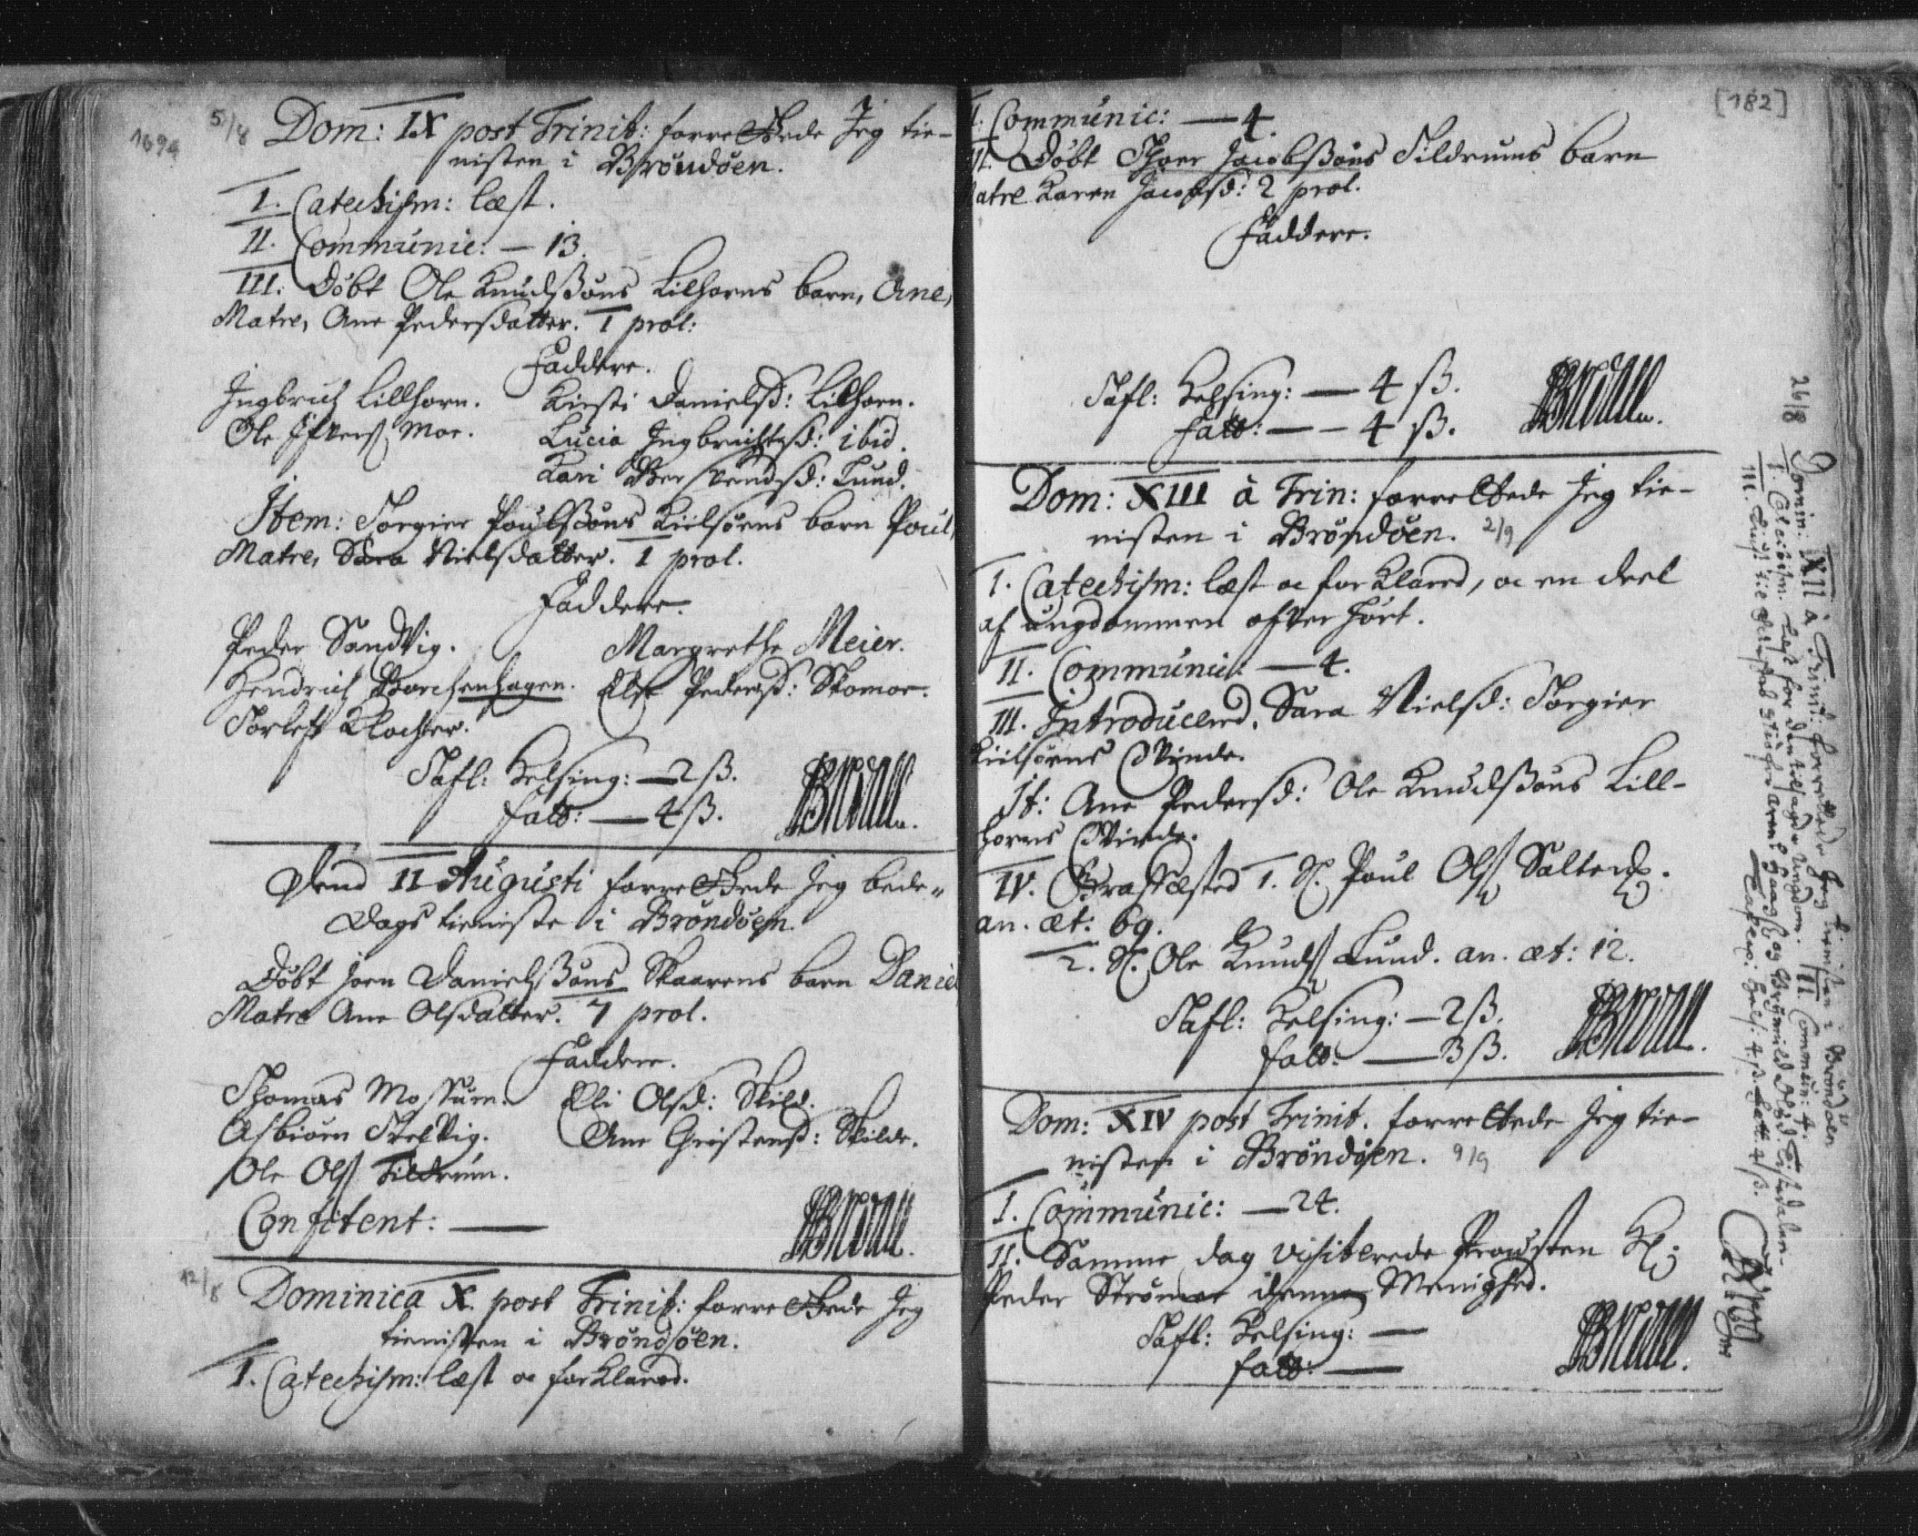 1694
5/8 Dom: IX post Trinit: forrettede Jeg tie-
nisten i Brøndøen.
I. Catechism: læst.
II. Communic: — 13.
III. Døbt Ole Knudssøns Lilhorns barn, Ane,
Matre, Ane Pedersdatter. 1 prol:
Faddere.
Ingbrich Lillhorn. Kirsti Danielsd: Lilhorn.
Ole Ifvers. Moe. Lucia Ingbrichtsd: ibid.
Kari Lund.
Item: Torgier Poulssøns Kielsørns barn Poul,
Matre, Sara Nielsdatter. 1 prol.
Faddere.
Peder Sandvig. Margrethe Meier.
Hendrich Borchenhagen. Else Pedersd: Skomoe.
Torleff Klocher.
Tafl: Helsing: — 2 ß.
fatt: — 4 ß.
Dend 11 Augusti forrettede Jeg bede-
dags tieniste i Brøndøen.
Døbt Joen Danielssøns Skaarens barn Daniel
Matre Ane Olsdatter. 7 prol.
Faddere.
Thomas Mossum. Elli Olsd: Skild.
Asbiørn Stelvig. Ane Christensd: Skilde.
Ole Ols. Tildrum.
Confitent: —
12/8 Dominica X. post Trinit: forrettede Jeg
tienisten i Brøndøen.
I. Catechism: læst oc forklared.
[182]
I. Communic: — 4.
II. Døbt Thoer Jacobssøns Tildrums barn
Matre Karen Jacobsd: 2 prol.
Faddere.
Tafl: Helsing: — 4 ß.
fatt: — — 4 ß.
Dom: XIII à Trin: forrettede Jeg tie-
nisten i Brøndøen. 2/9
I. Catechism: læst oc forklared, oc en deel
af ungdommen ofver hørt.
II. Communic: — 4.
III. Introducerd, Sara Nielsd: Torgier
Kiilsørns Qvinde.
It: Ane Pedersd: Ole Knudssøns Lill-
horns Qvinde.
IV. Græsfæsted 1. S. Poul Ols. Salten.
an. æt: 69.
2. S. Ole Knuds. Lund. an. æt: 12.
Tafl: Helsing: — 2 ß.
fatt: — 3 ß.
Dom: XIV post Trinit. forrettede Jeg tie-
nisten i Brøndøen. 9/9
I. Communic: — 24.
II. Samme dag visiterede Provsten H:
Peder Strømer denne Menighed.
Tafl: Helsing: —
fatt: —
26/8 Domin: XII à Trinit: forrettede Jeg tienisten i Brøndøen
I. læst for den ungdom. II. Commun: 4.
III.
Tafl: Helsi: 4 ß. fatt: 4 ß.